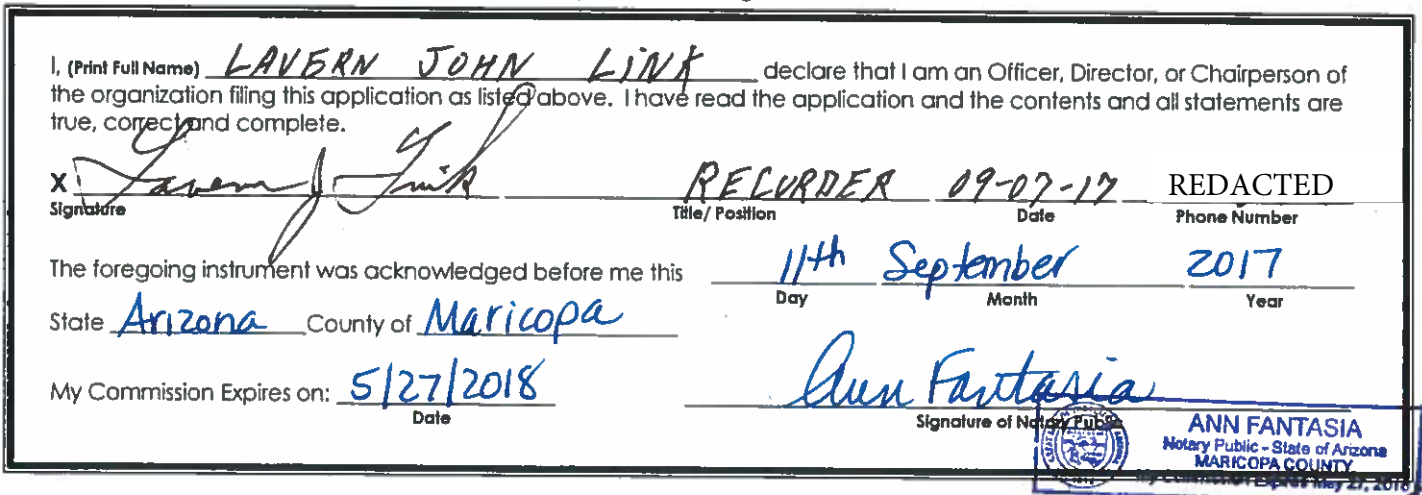 I, (Print Full Name) LAVERN JOHN LINK declare that I am an Officer, Director, or Chairperson of
the organization filing this application as listed above. I have read the application and the contents and all statements are
true, correct and complete.
X Lavern J Link RECORDER 09-07-17 REDACTED
Signature Title/ Position Date Phone Number
The foregoing instrument was acknowledged before me this 11th September 2017
Day Month Year
State Arizona County of Maricopa
My Commission Expires on: 5/27/2018 Ann Fantasia
Date Signature of Notary Public
ANN FANTASIA
Notary Public - State of Arizona
MARICOPA COUNTY
My Commission Expires May 27, 2018